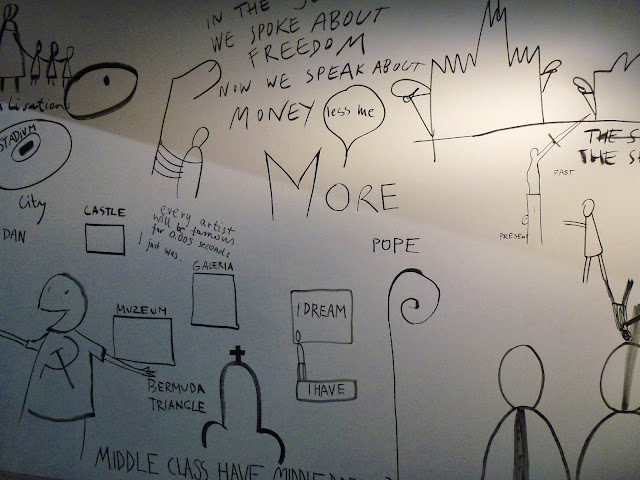 IN THE
WE SPOKE ABOUT
FREEDOM
NOW WE SPEAK ABOUT
MONEY
less me
MORE
STADIUM
City
DAN
CASTLE
every artist
will be famous
for 0.005 seconds
I just was.
GALERIA
MUZEUM
BERMUDA
TRIANGLE
I DREAM
I HAVE
POPE
PAST
PRESENT
THE
THE
MIDDLE CLASS HAVE